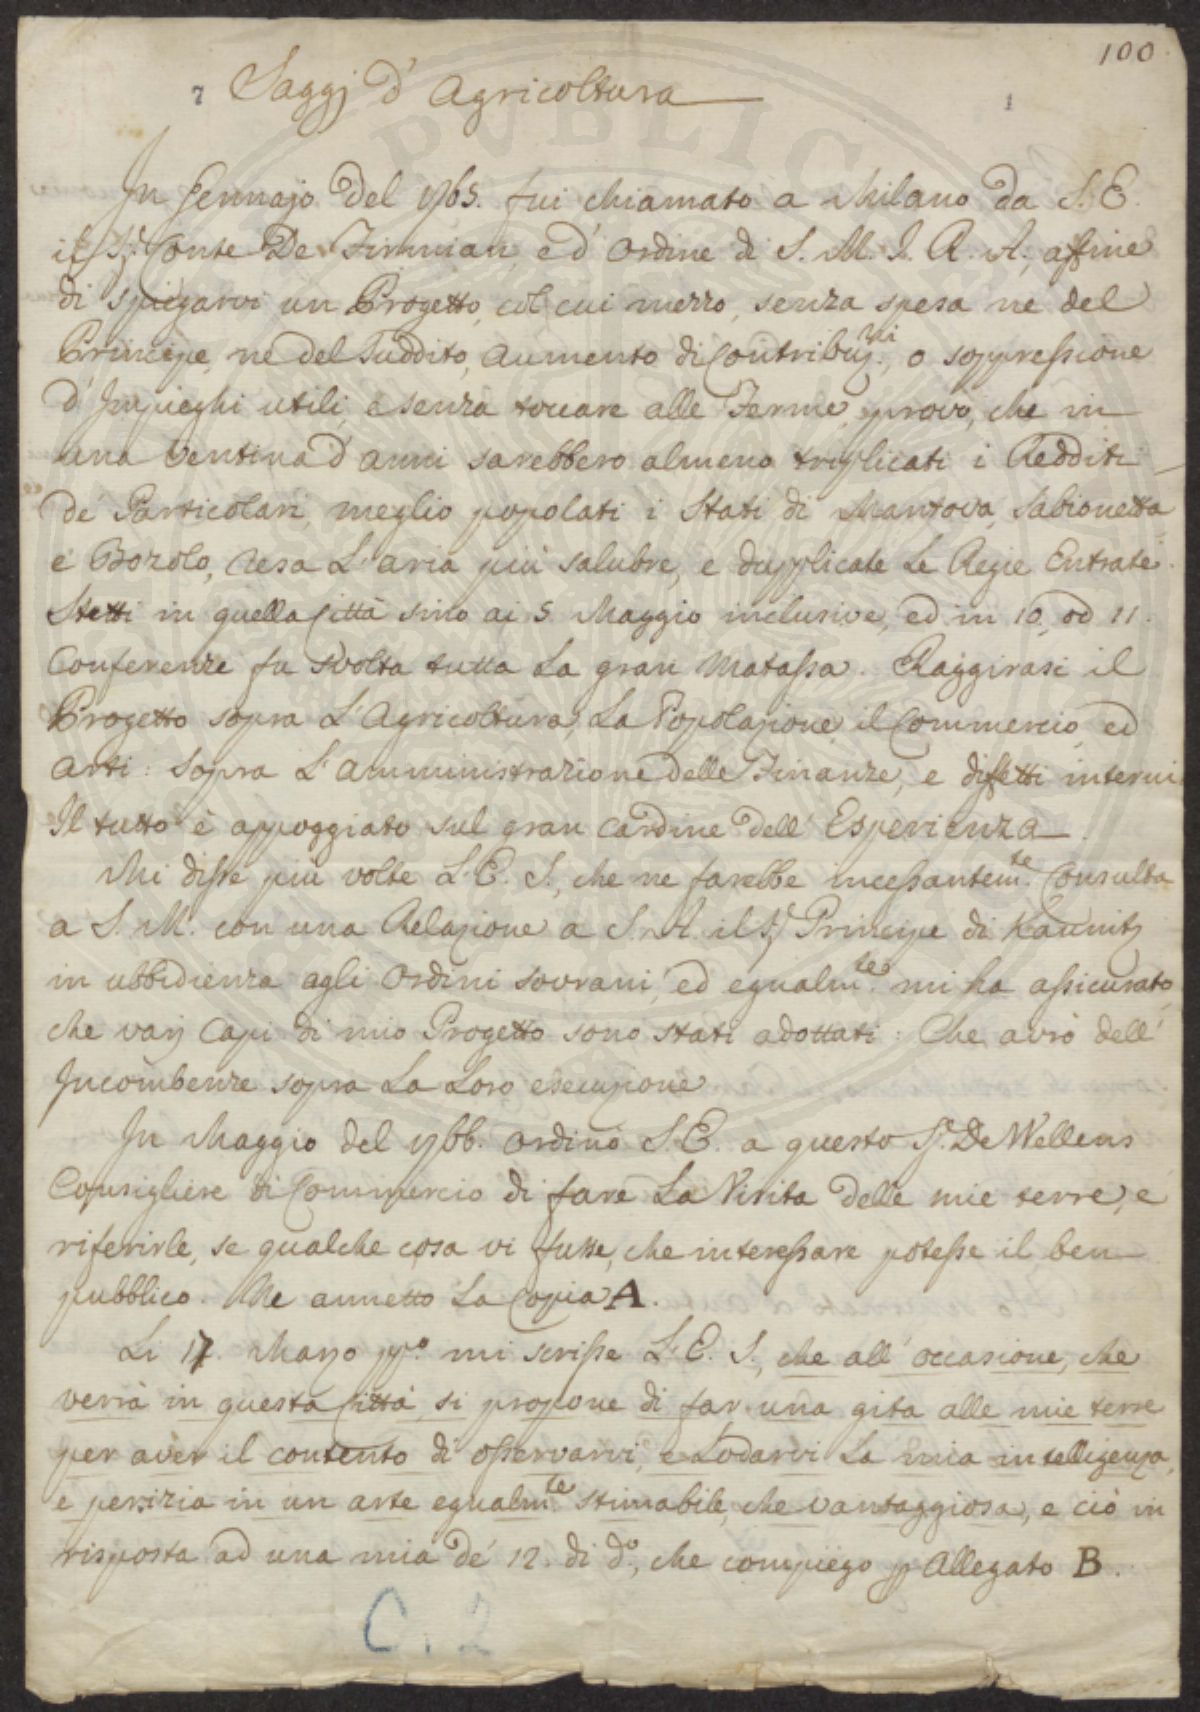 100
7 Saggj d'Agricoltura 1
In Gennajo del 1765. fui chiamato a Milano da S. E.
il Sr. Conte De Firmian, e d'ordine di S. M. I. R. A., affine
di spiegarvi un Progetto, col cui mezzo, senza spesa ne del
Principe, ne del Suddito, aumento di Contribuz.ni, o soppressione
d'Impieghi utili, e senza toccare alle Ferme, provo, che in
una ventina d'anni sarebbero almeno triplicati i Redditi
de' Particolari, meglio popolati i Stati di Mantova, Sabionetta
e Bozolo, resa L'aria più salubre, e dupplicate Le Regie Entrate.
Stetti in quella Città sino ai 5 Maggio inclusive, ed in 10, od 11.
Conferenze fu svolta tutta La gran Matassa. Raggirasi il
Progetto sopra L'Agricoltura, La Popolazione, il Commercio, ed
arti: sopra L'amministrazione delle Finanze, e difetti interni
Il tutto è appoggiato sul gran cardine dell'Esperienza.
Mi disse più volte L'E. S., che ne farebbe incessantem.te Consulta
a S. M. con una Relazione a S. A. il Sr. Principe di Kaunitz
in ubbidienza agli ordini sovrani, ed egualm.te mi ha assicurato,
che varj Capi di mio Progetto sono stati adottati: Che avrò dell'
Incombenze sopra La Loro esecuzione
In Maggio del 1766. ordinò S. E. a questo Sr. De Wellens
Consigliere di Commercio di fare La Visita delle mie terre, e
riferirle, se qualche cosa vi fusse, che interessare potesse il ben
pubblico. Ne annetto La Copia A.
Li 17. Marzo pp.o mi scrisse L'E. S., che all'occasione, che
verrà in questa Città, si propone di far una gita alle mie terre
per aver il contento di osservarvi, e Lodarvi La mia intelligenza,
e perizia in un arte egualm.te stimabile, che vantaggiosa, e ciò in
risposta ad una mia de' 12. di d.o, che compiego p Allegato B.
C. 2